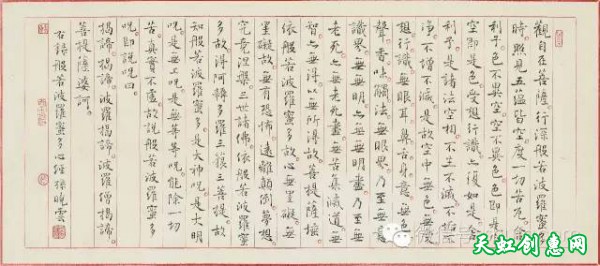 觀自在菩薩行深般若波羅蜜多
時照見五蘊皆空度一切苦厄舍
利子色不異空空不異色色即是
空空即是色受想行識亦復如是舍
利子是諸法空相不生不滅不垢
淨不增不減是故空中無色無受
想行識無眼耳鼻舌身意無色
聲香味觸法無眼界乃至無意
識界無無明亦無無明盡乃至無
老死亦無老死盡無苦集滅道無
智亦無得以無所得故菩提薩埵
依般若波羅蜜多故心無罣礙無
罣礙故無有恐怖遠離顛倒夢想
究竟涅槃三世諸佛依般若波羅蜜
多故得阿耨多羅三藐三菩提故
知般若波羅蜜多是大神咒是大明
咒是無上咒是無等等咒能除一切
苦真實不虛故說般若波羅蜜多
咒即說咒曰
揭諦揭諦波羅揭諦波羅僧揭諦
菩提薩婆訶
右錄般若波羅蜜多心經孫曉雲
天虹创意网